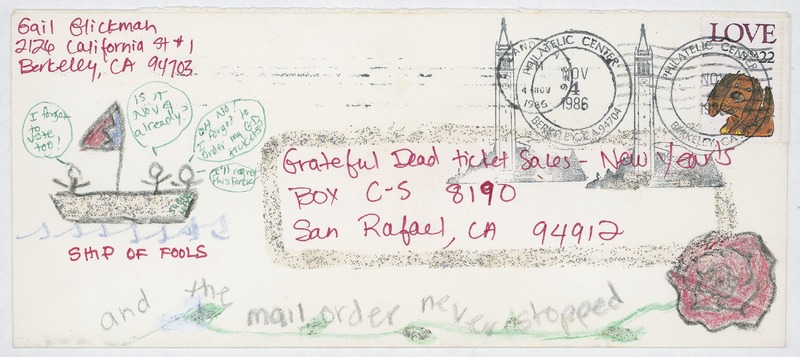 Gail Glickman
2126 California St #1
Berkeley, CA 94703
I forgot
to
vote
too!
is it
Nov 4
already?
oh NO
I
forgot to
order my GD
tickets!
I'll regret
this forever
SHIP OF FOOLS
PHILATELIC CENTER
4 NOV
1986
NOV
4
1986
BERKELEY, CA 94704
PHILATELIC CENTER
NOV
BERKELEY, CA
LOVE
22
Grateful Dead ticket Sales - New Years
BOX C-S 8190
San Rafael, CA 94912
and the mail order never stopped